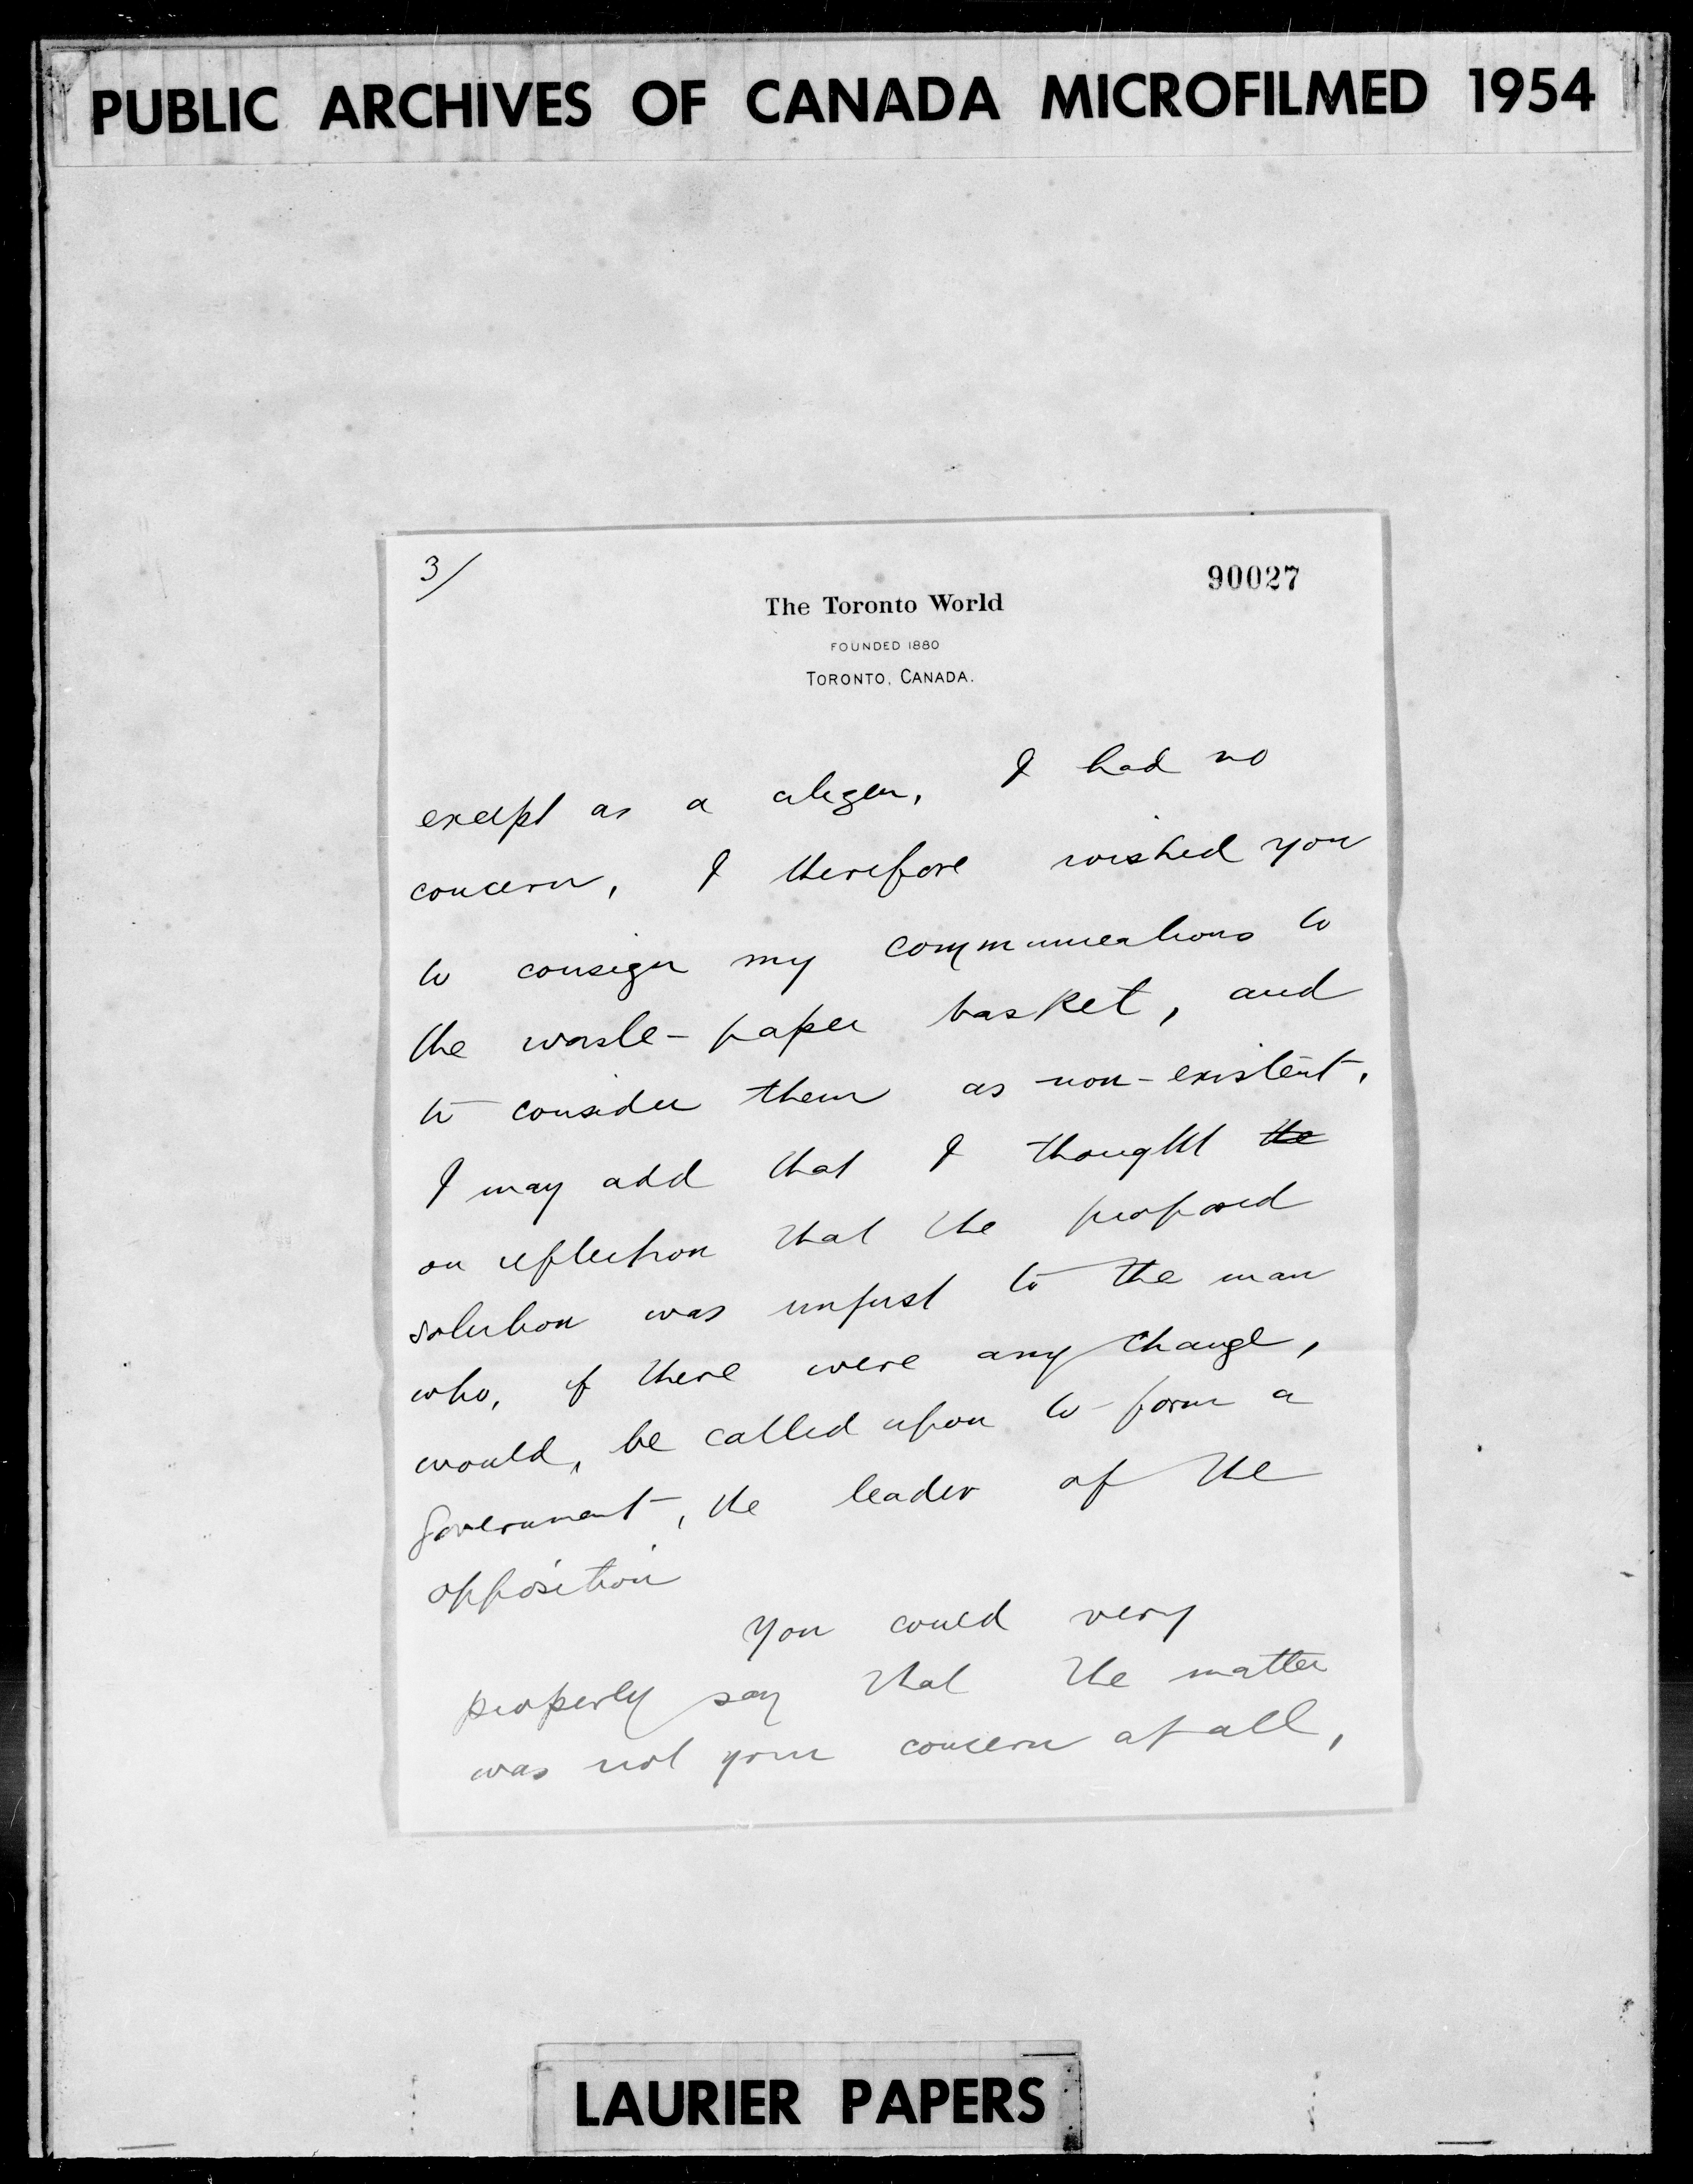 PUBLIC ARCHIVES OF CANADA MICROFILMED 1954
3/
90027
The Toronto World
FOUNDED 1880
TORONTO, CANADA.
except as a citizen, I had no
concern, I therefore wished you
to consign my communications to
the waste-paper basket, and
to consider them as non-existent.
I may add that I thought the
on reflection that the proposed
solution was unjust to the man
who, if there were any change,
would, be called upon to form a
government, the leader of the
opposition
You could very
properly say that the matter
was not your concern at all,
LAURIER PAPERS